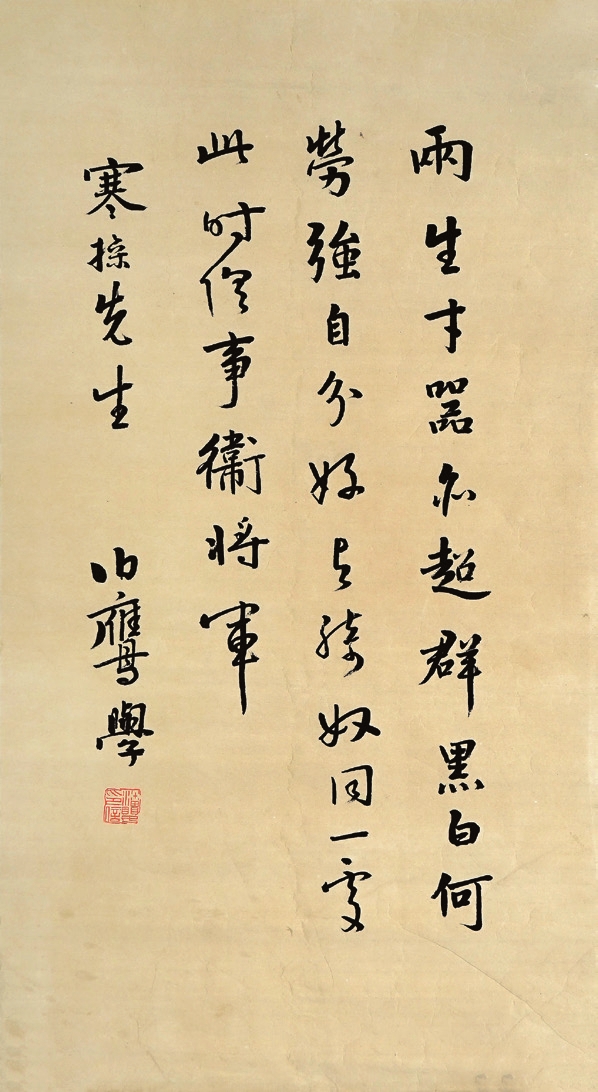 兩生才器亦超群黑白何
勞強自分好与騎奴同一處
此时俱事衛將軍
寒操先生 伯鷹學